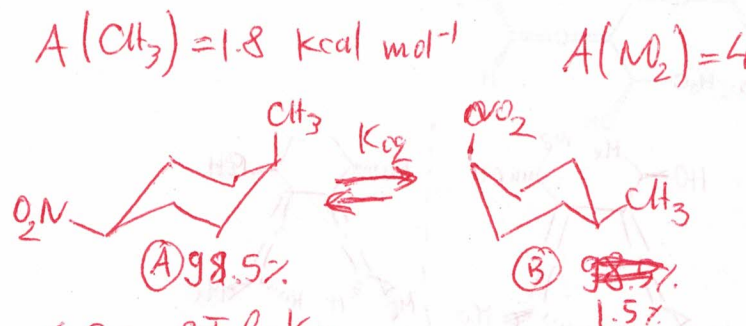 A(CH3) = 1.8 kcal mol⁻¹ A(NO2) = 4
CH3 Keq NO2
O2N CH3
A 98.5% B 98.5%
1.5%